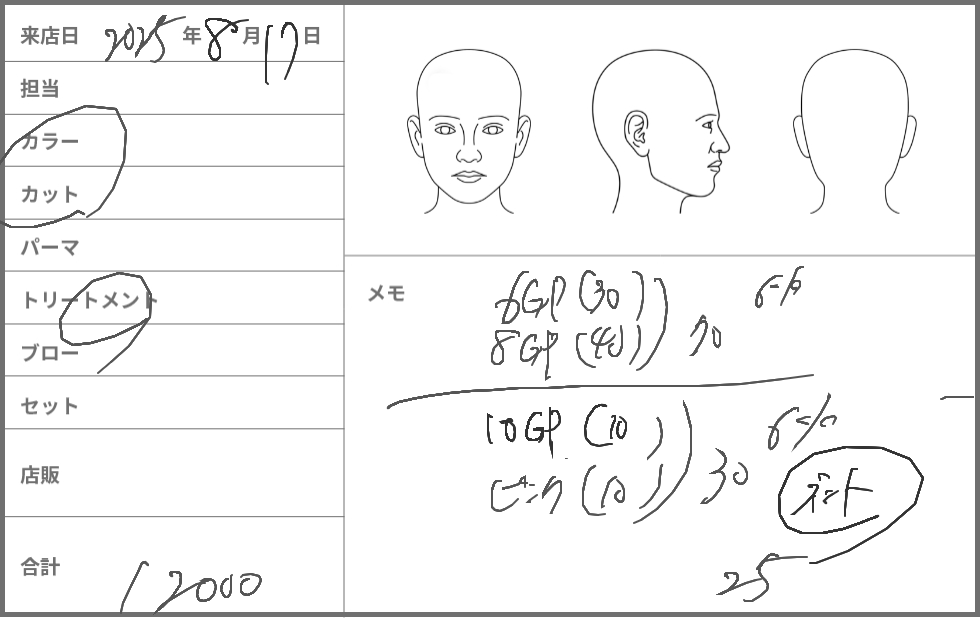 来店日 2025 年 8 月 17 日
担当
カラー
カット
パーマ
トリートメント
ブロー
セット
店販
合計 12000
メモ
6GP (30) 6%
8GP (40) 70
10GP (10) 6%
ピンク (10) 30
25